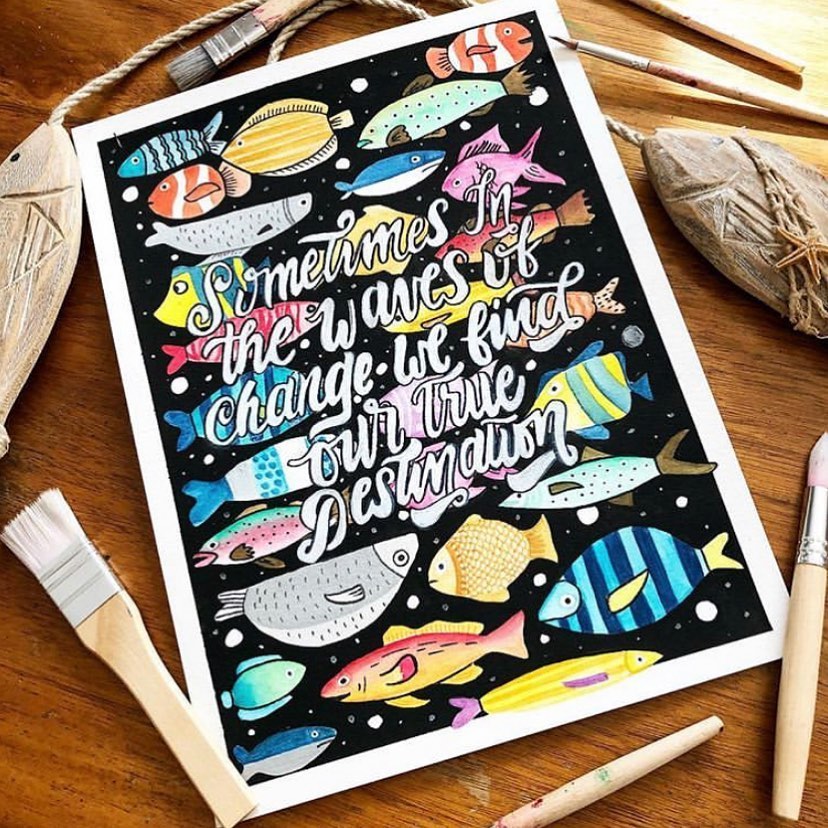 Sometimes In
the waves of
change we find
our True
Destination